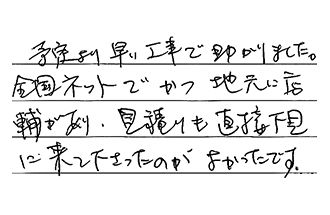 予定より早い工事で助かりました。
全国ネットでかつ地元に店
輔があり、見積りも直接下見
に来て下さったのがよかったです。